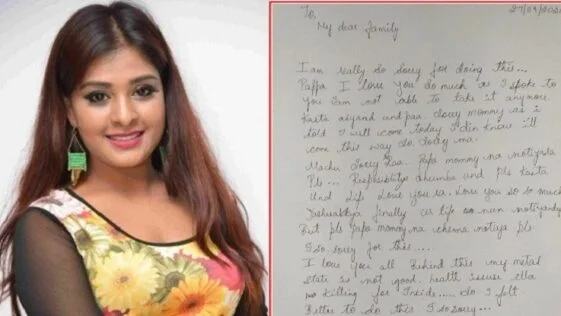 To, 27/09/202
My dear family
I am really so sorry for doing this...
Pappa I love you so much as I spoke to
you I am not able to take it anymore.
Kasta aythandpaa. Sorry mommy as i
told I will come today I din know ill
come this way so Sorry ma.
Machu Sorry Laa. Papa mommy na
Pls... dhumba and pls Kasta
Und Life Love you sa. Love you so so much
finally us life nen
But pls papa mommy na chenna notiya pls
I so sorry for this....
I love you all Behind this my metal
State is not good. health issuse ella
Killing for Inside..... So I felt
Better to do this I so sorry...